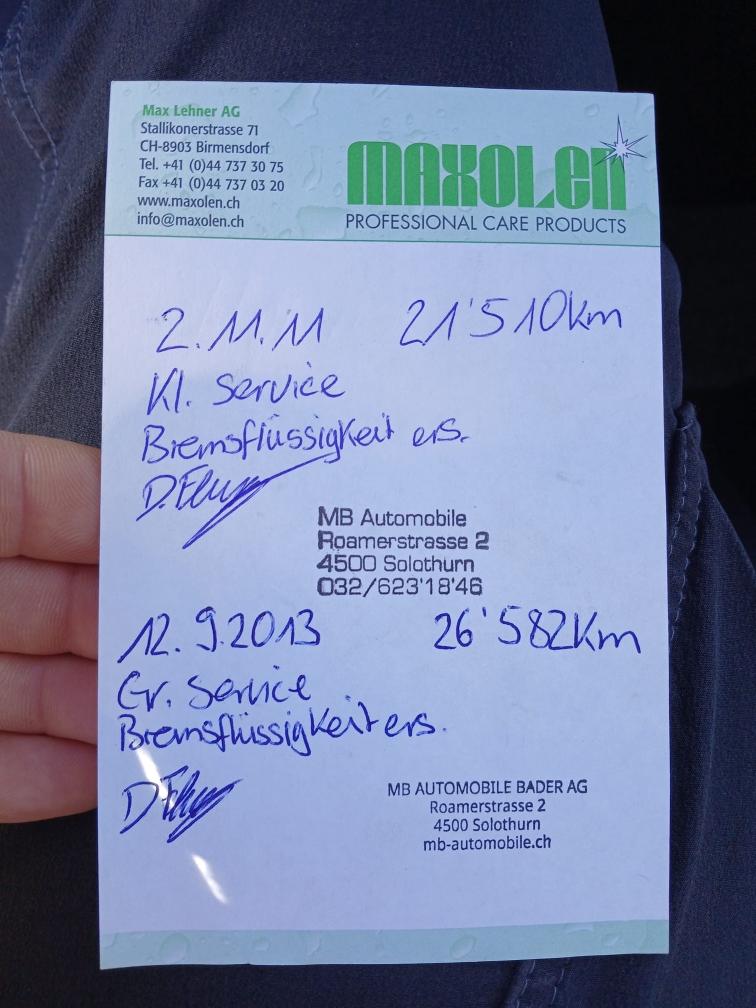 Max Lehner AG
Stallikonerstrasse 71
CH-8903 Birmensdorf
Tel. +41 (0)44 737 30 75
Fax +41 (0)44 737 03 20
www.maxolen.ch
info@maxolen.ch
MAXOLEN
PROFESSIONAL CARE PRODUCTS
2.11.11 21'510km
Kl. Service
Bremsflüssigkeit ers.
MB Automobile
Roamerstrasse 2
4500 Solothurn
032/623'18'46
12.9.2013 26'582Km
Gr. Service
Bremsflüssigkeit ers.
MB AUTOMOBILE BADER AG
Roamerstrasse 2
4500 Solothurn
mb-automobile.ch